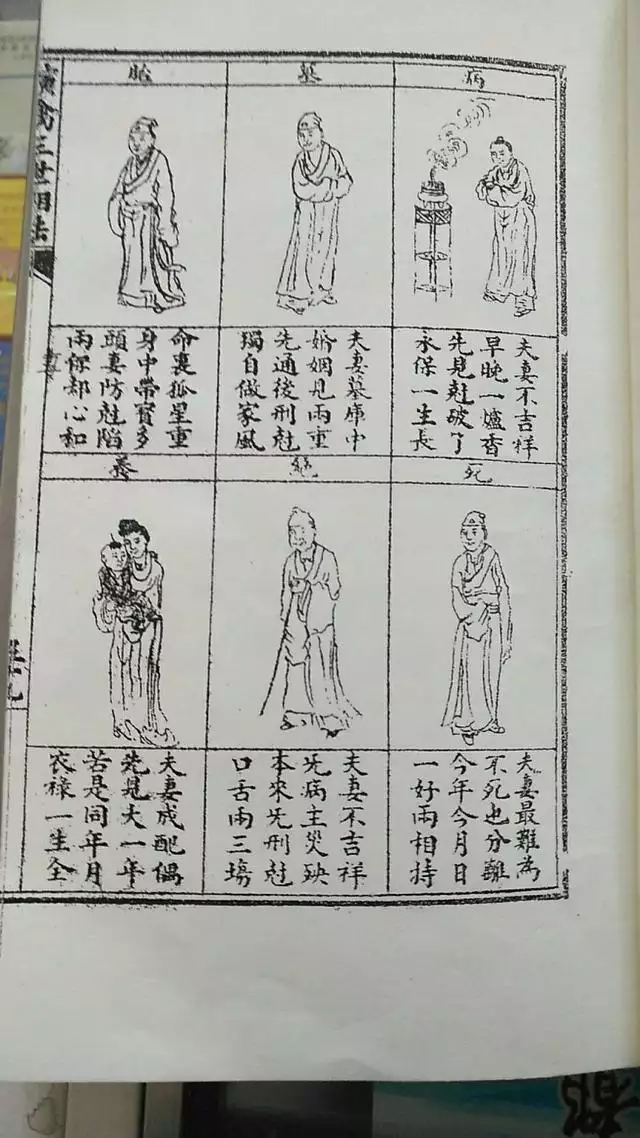 病
夫妻不吉祥
早晚一爐香
先見尅破了
永保一生長
墓
夫妻墓庫中
婚姻見兩重
先通後刑尅
獨自做家風
胎
命裏孤星重
身中帶寳多
頭妻防尅陷
兩保却心和
死
夫妻最難為
不死也分離
今年今月日
一好兩相持
絕
夫妻不吉祥
先病主災殃
本來先刑尅
口舌兩三塲
養
夫妻成配偶
先是大一年
若是同年月
衣祿一生全
演禽三世相法